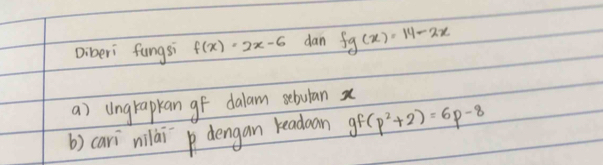 Diberi fungsi f(x) = 2x-6 dan fg(x) = 14-2x
a) Ungkapkan gf dalam sebutan x
b) cari nilai p dengan keadaan gf(p²+2) = 6p-8